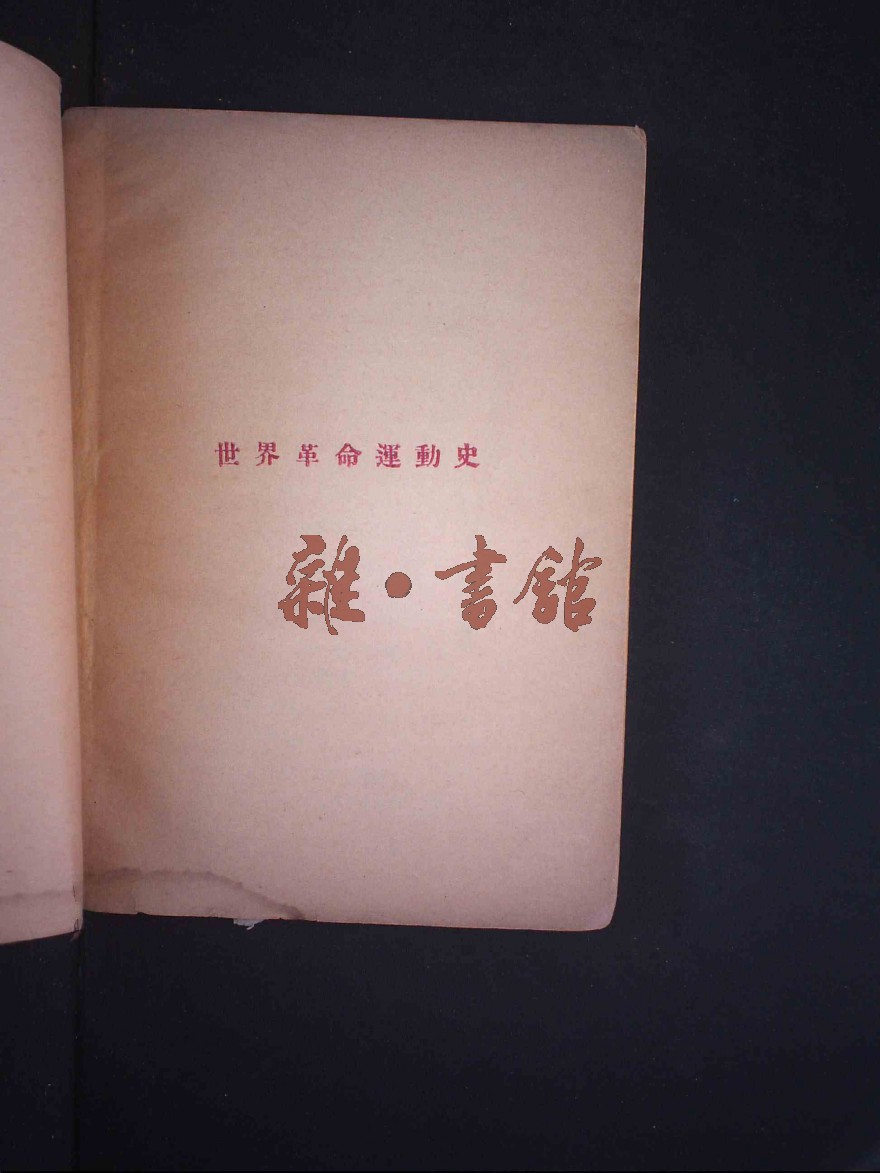 世界革命運動史
雜·書館